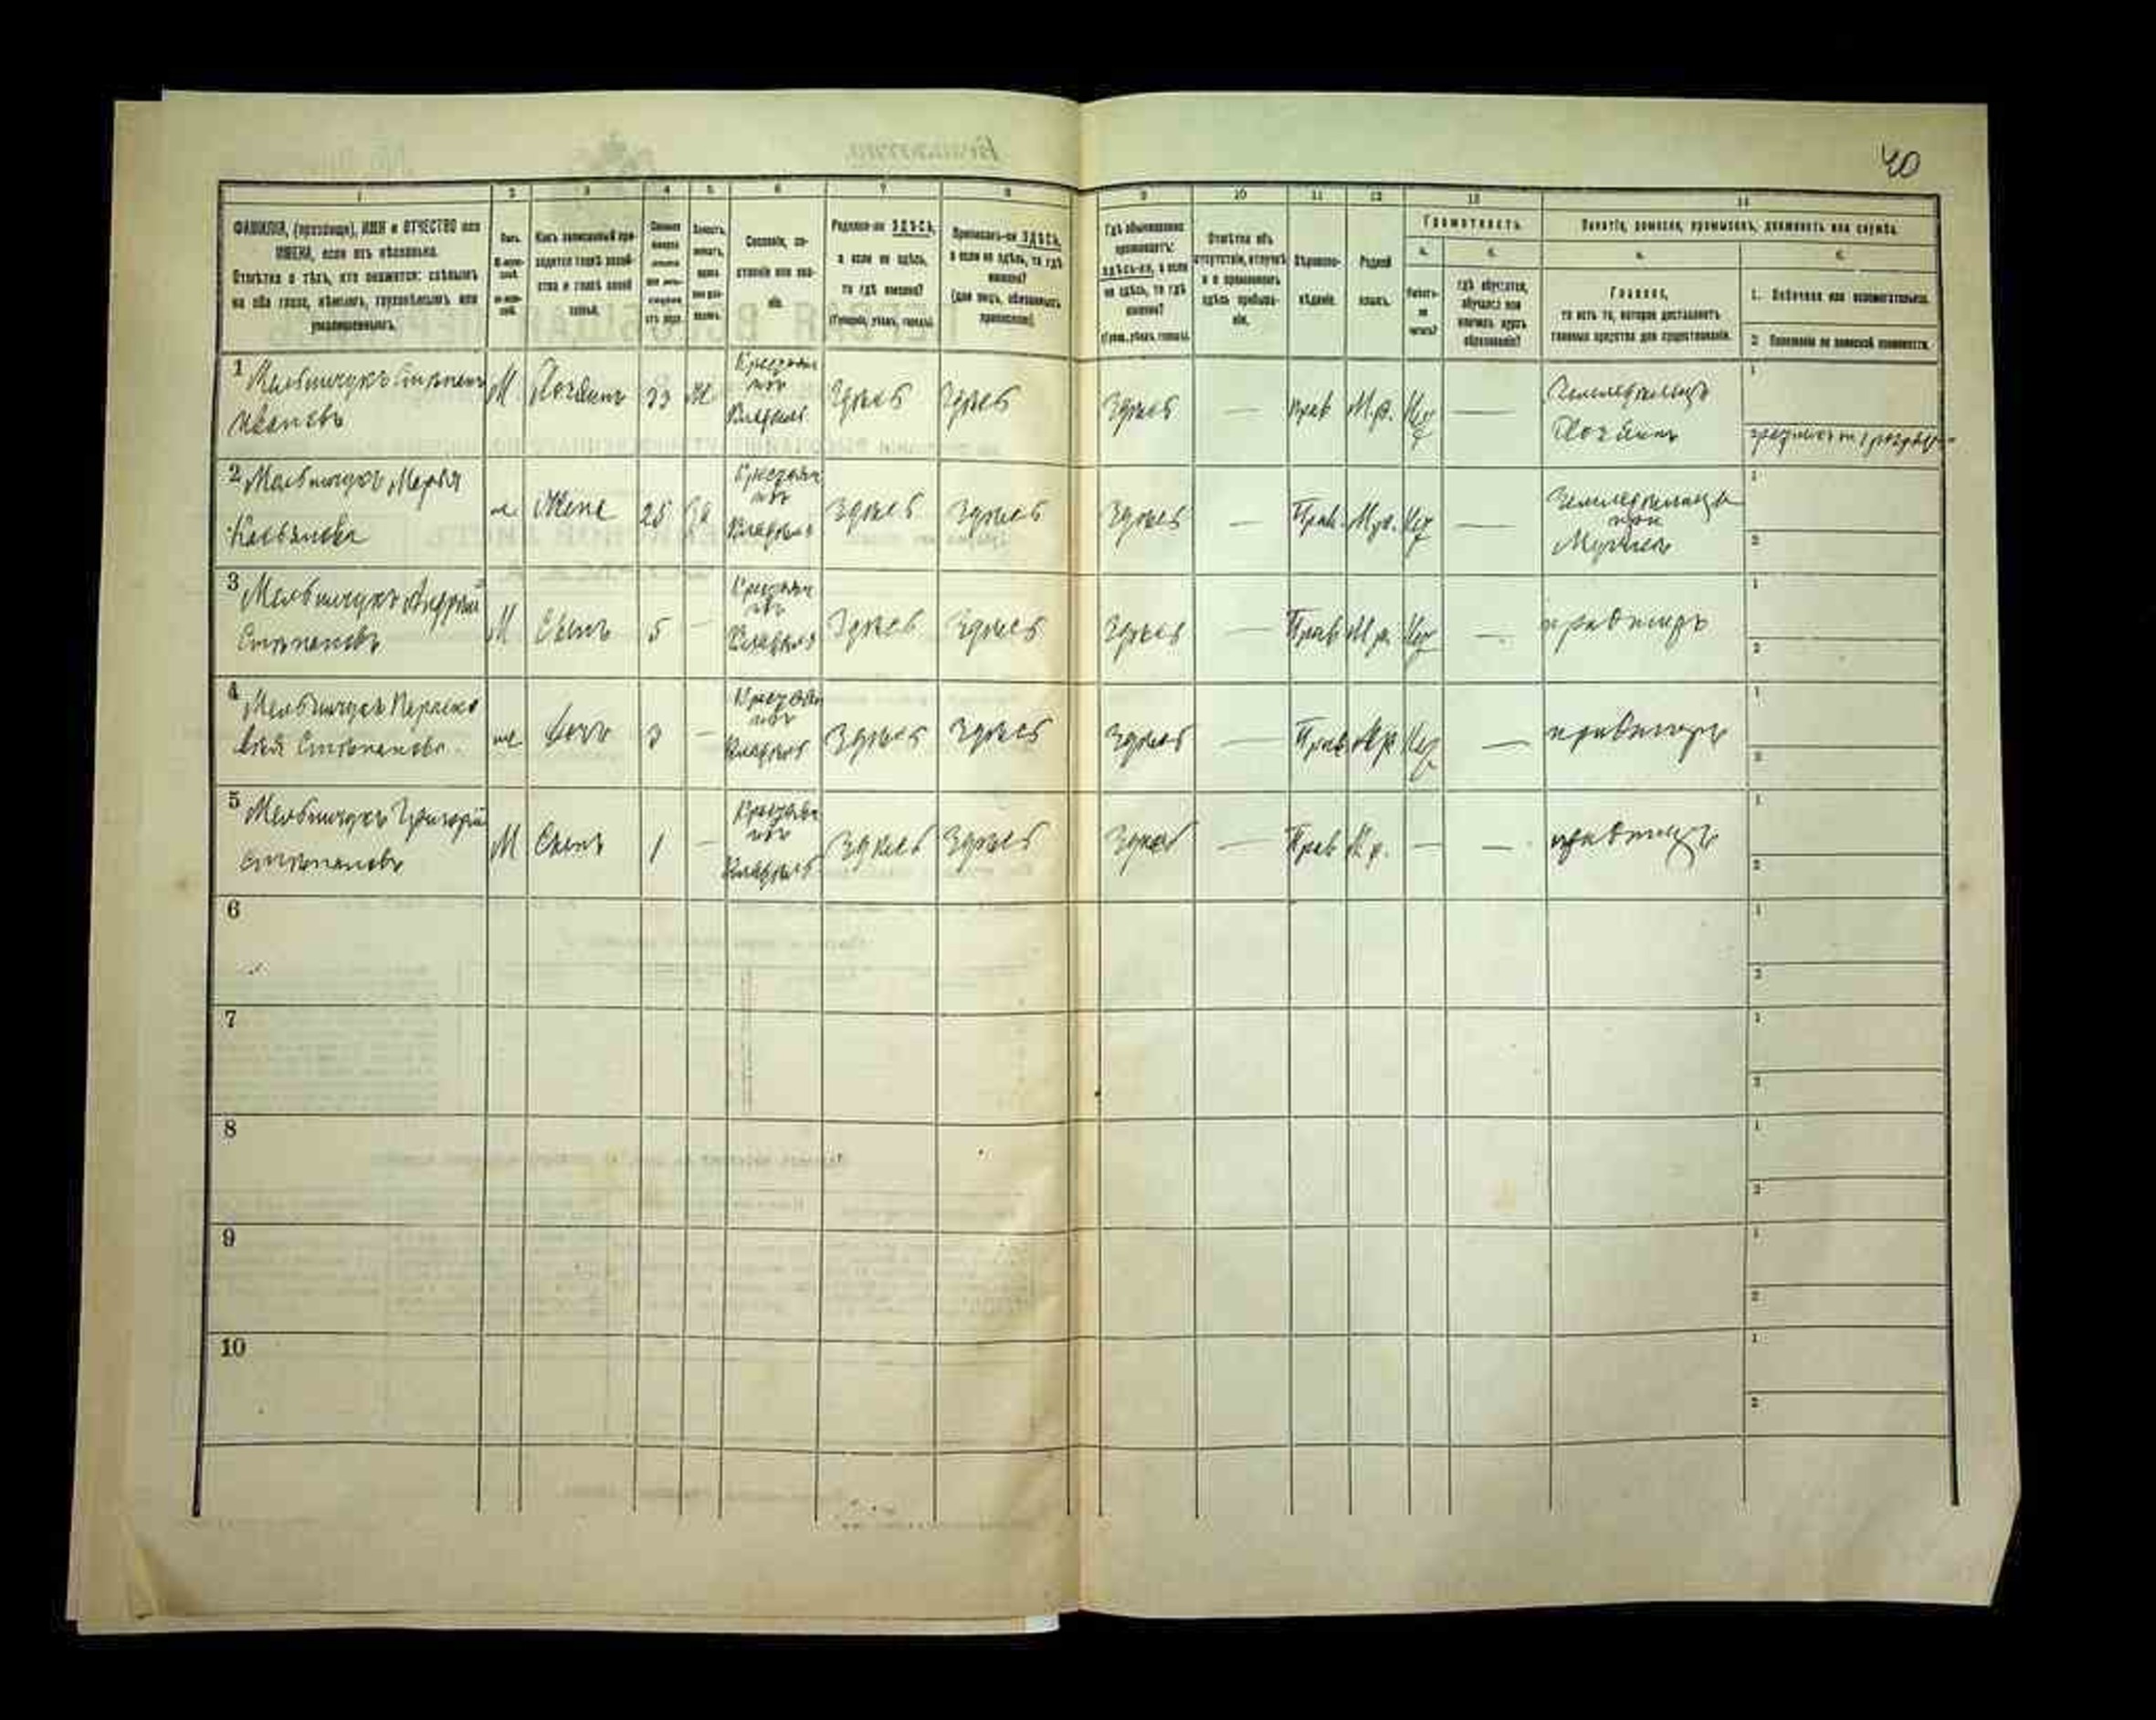 40
1 2 3 4 5 6 7 8 9 10 11 12 13 14
ФАМИЛІЯ, (прозвище), ИМЯ и ОТЧЕСТВО или
ИМЕНА, если ихъ нѣсколько.
Отмѣтка о тѣхъ, кто окажется: слѣпымъ
на оба глаза, нѣмымъ, глухонѣмымъ или
умалишеннымъ.
Полъ.
Какъ записанный при-
ходится главѣ хозяй-
ства и главѣ своей
семьи.
Сословіе, со-
стояніе или зва-
ніе.
Родился-ли ЗДѢСЬ,
а если не здѣсь,
то гдѣ именно?
(Губернія, уѣздъ, городъ).
Приписанъ-ли ЗДѢСЬ,
а если не здѣсь, то гдѣ
именно?
(для лицъ, обязанныхъ
припискою).
Гдѣ обыкновенно
проживаетъ:
здѣсь-ли, а если
не здѣсь, то гдѣ
именно?
(Губерн., уѣздъ, городъ).
Отмѣтка объ
отсутствіи, отлучкѣ
и о временномъ
здѣсь пребыва-
ніи.
Вѣроиспо-
вѣданіе.
Родной
языкъ.
Грамотность.
а.
Умѣетъ-
ли
читать?
б.
гдѣ обучается,
обучался или
кончилъ курсъ
образованія?
Занятіе, ремесло, промыселъ, должность или служба.
а.
Главное,
то есть то, которое доставляетъ
главныя средства для существованія.
б.
1. Побочное или вспомогательное.
2. Положеніе по воинской повинности.
1 Мельничукъ Степанъ
Ивановъ
М Хозяинъ 33 Ж
Крестьян
изъ
Владѣльч
Здѣсь Здѣсь Здѣсь — Прав М.р. Нѣт —
Земледѣлецъ
Хозяинъ
2 Мельничукъ Марья
ж Жена 25 За
Крестьян
изъ
Владѣльч
Здѣсь Здѣсь Здѣсь — Прав. М.р. Нѣт —
Земледѣлица
при
Мужѣ
3 Мельничукъ Андрій
Степановъ
М Сынъ 5 —
Крестьян
изъ
Владѣльч
Здѣсь Здѣсь Здѣсь — Прав М.р. Нѣт —
при отцѣ
4 Мельничукъ Параско
вія Степанова
ж Дочь 3 —
Крестьян
изъ
Владѣльч
Здѣсь Здѣсь Здѣсь — Прав М.р. Нѣт —
при отцѣ
5 Мельничукъ Григорій
Степановъ
М Сынъ 1 —
Крестьян
изъ
Владѣльч
Здѣсь Здѣсь Здѣсь — Прав М.р. — —
при отцѣ
6
7
8
9
10